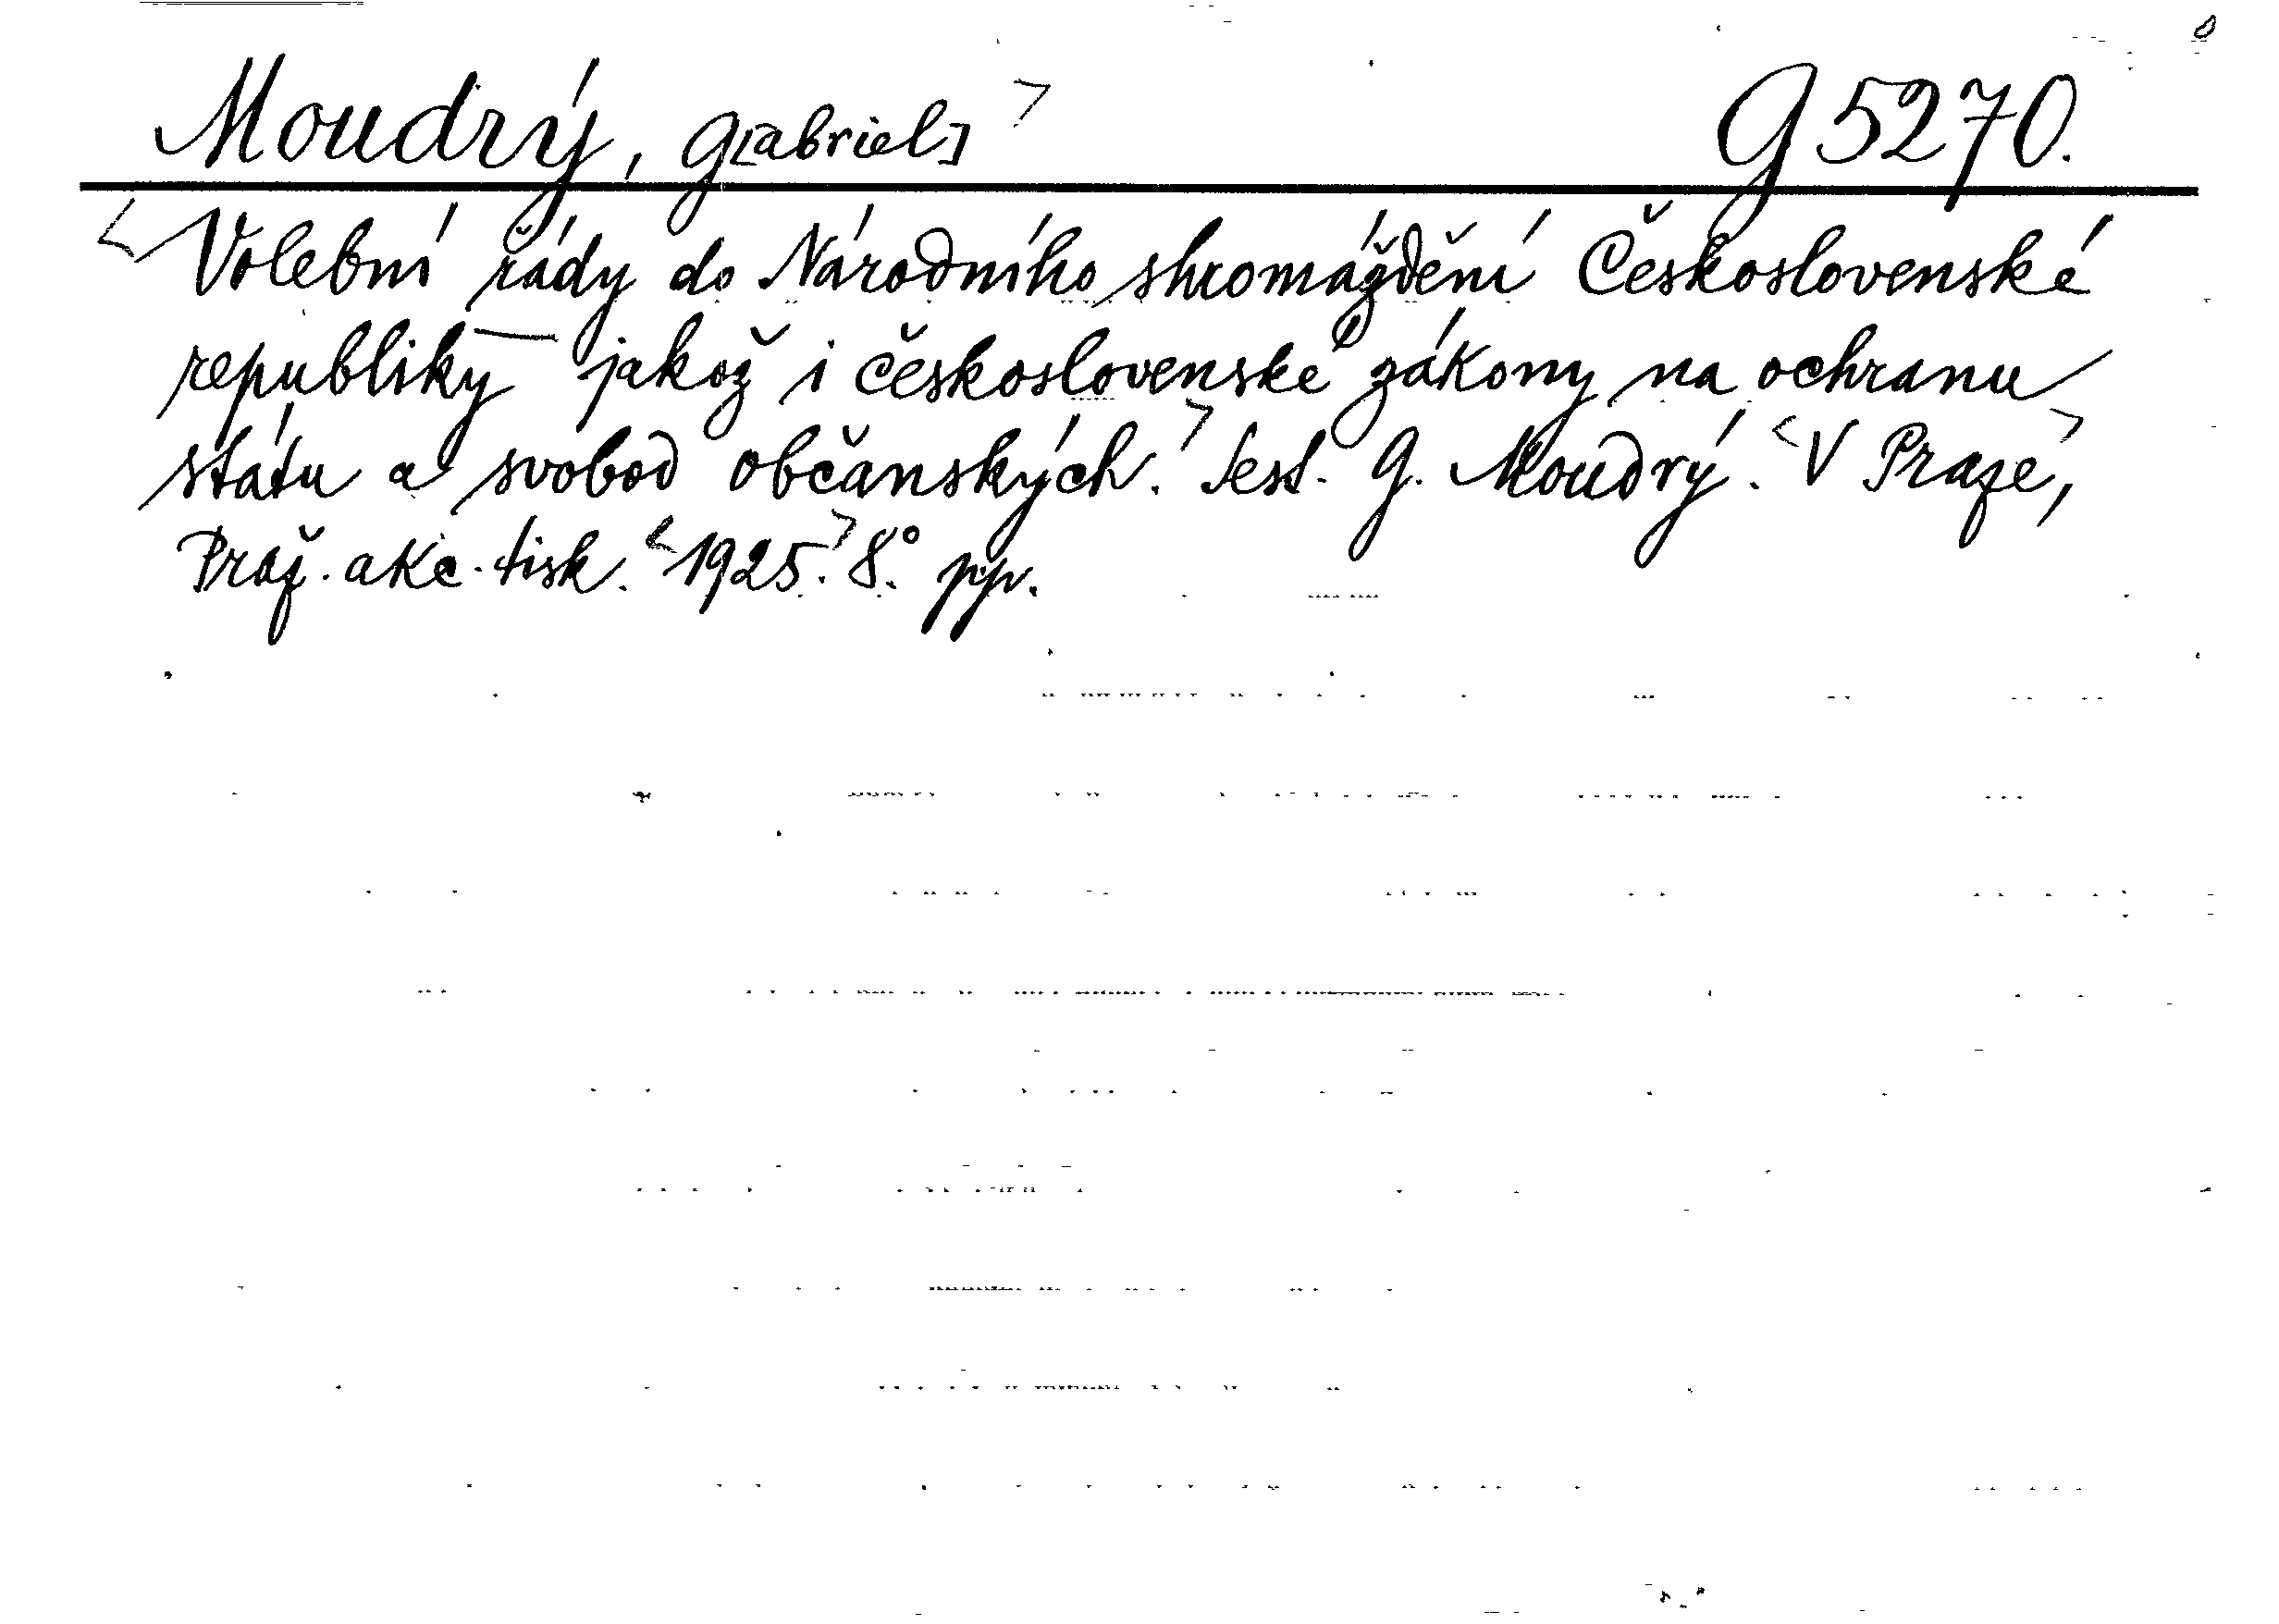 Moudrý, G[abriel] G 5270.
Volební řády do Národního shromáždění Československé
republiky jakož i československé zákony na ochranu
státu a svobod občanských. Sest. G. Moudrý. V Praze,
Praž. akc. tisk. 1925. 8.° pp.